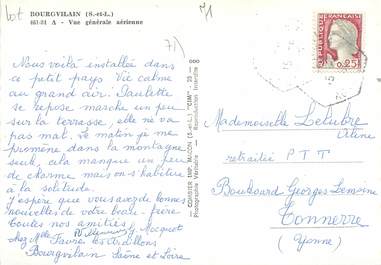 lot
71
BOURGVILAIN (S.-et-L.)
461-31 A - Vue générale aérienne
71)
Nous voilà installées dans
ce petit pays Vie calme
au grand air. Paulette
se repose marche un peu
sur la terrasse, elle ne va
pas mal. Le matin je me
promène dans la montagne
seule, cela manque un peu
de charme mais on s'habitue
à la solitude.
J'espère que vous avez de bonnes
nouvelles de votre beau-frère
Toutes nos amitiés
G. Mocquot
chez Mlle Favre les Ardillons
Bourgvilain Saône et Loire
COMBIER IMP. MACON (S.-et-L.) "CIM"
Photographie Véritable - Reproduction Interdite
REPUBLIQUE FRANCAISE
0,25
Mademoiselle Lelubre
retraitée P T T
Boulevard Georges Lemoine
Tonnerre
(Yonne)